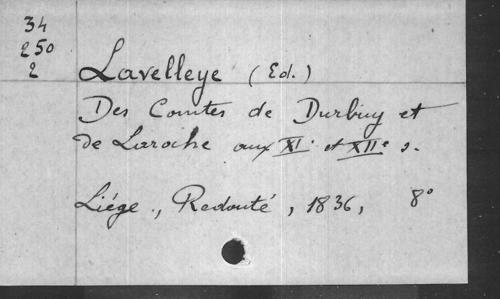 34
250
2
Lavelleye (Ed.)
Des Comtes de Durbuy et
de Laroche aux XIe et XIIe s.
Liége, Redouté, 1836, 8°